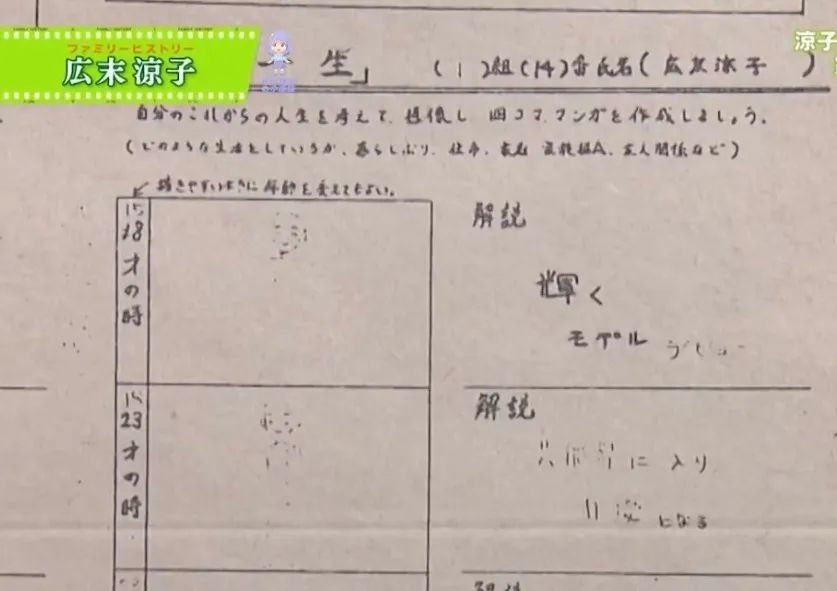 ファミリーヒストリー
広末涼子
涼子
生」
(1)組(14)番氏名(広末涼子)
自分のこれからの人生を考えて、想像し四コママンガを作成しましょう。
(どのような生活をしているか、暮らしぶり、仕事、家族 友人関係など)
描きやすいように年齢を変えてもよい。
15
18
才の時
解説
輝く
モデル
15
23
才の時
解説
に入り
になる